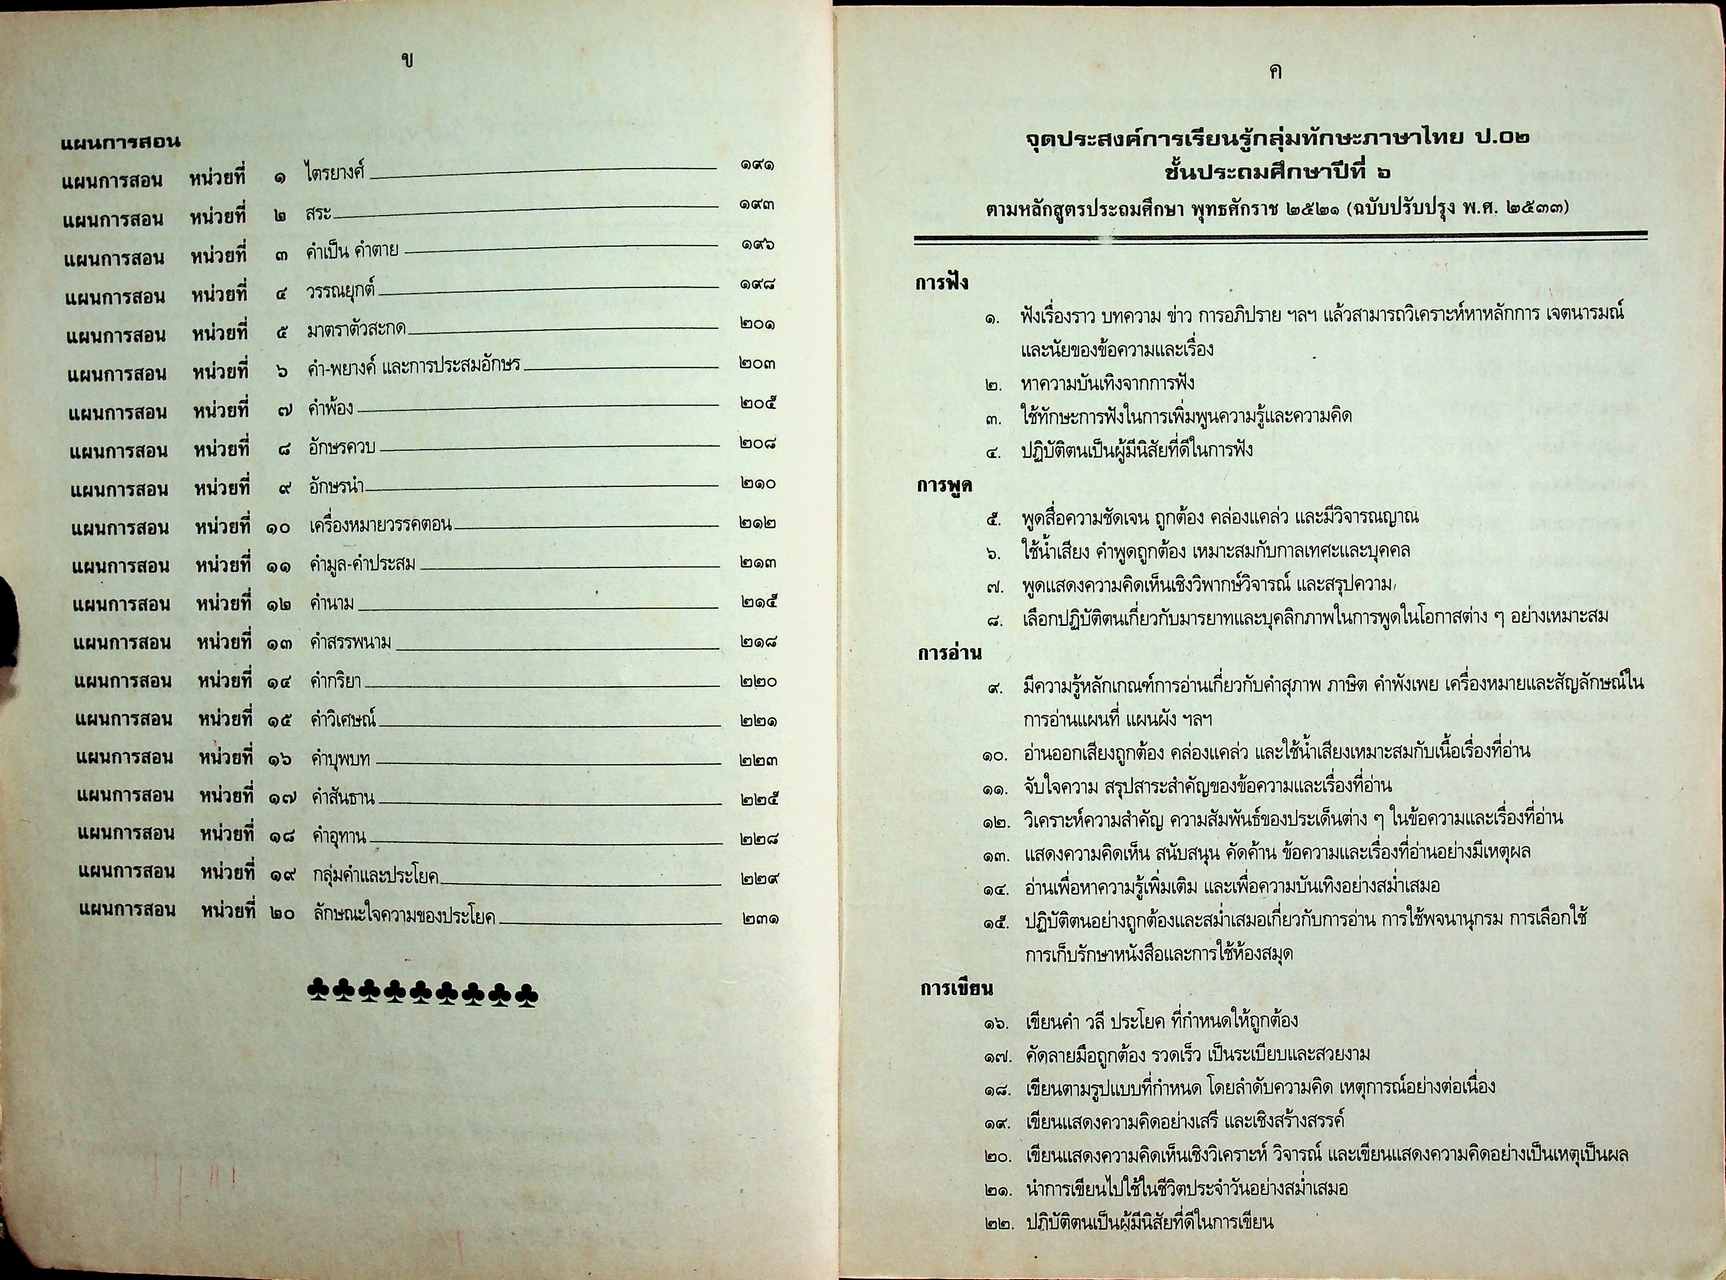 ข
แผนการสอน
แผนการสอน หน่วยที่ ๑ ไตรยางศ์ ๑๙๑
แผนการสอน หน่วยที่ ๒ สระ ๑๙๓
แผนการสอน หน่วยที่ ๓ คำเป็น คำตาย ๑๙๖
แผนการสอน หน่วยที่ ๔ วรรณยุกต์ ๑๙๘
แผนการสอน หน่วยที่ ๕ มาตราตัวสะกด ๒๐๑
แผนการสอน หน่วยที่ ๖ คำ-พยางค์ และการประสมอักษร ๒๐๓
แผนการสอน หน่วยที่ ๗ คำพ้อง ๒๐๕
แผนการสอน หน่วยที่ ๘ อักษรควบ ๒๐๘
แผนการสอน หน่วยที่ ๙ อักษรนำ ๒๑๐
แผนการสอน หน่วยที่ ๑๐ เครื่องหมายวรรคตอน ๒๑๒
แผนการสอน หน่วยที่ ๑๑ คำมูล-คำประสม ๒๑๓
แผนการสอน หน่วยที่ ๑๒ คำนาม ๒๑๕
แผนการสอน หน่วยที่ ๑๓ คำสรรพนาม ๒๑๘
แผนการสอน หน่วยที่ ๑๔ คำกริยา ๒๒๐
แผนการสอน หน่วยที่ ๑๕ คำวิเศษณ์ ๒๒๑
แผนการสอน หน่วยที่ ๑๖ คำบุพบท ๒๒๓
แผนการสอน หน่วยที่ ๑๗ คำสันธาน ๒๒๕
แผนการสอน หน่วยที่ ๑๘ คำอุทาน ๒๒๘
แผนการสอน หน่วยที่ ๑๙ กลุ่มคำและประโยค ๒๒๙
แผนการสอน หน่วยที่ ๒๐ ลักษณะใจความของประโยค ๒๓๑
ค
จุดประสงค์การเรียนรู้กลุ่มทักษะภาษาไทย ป.๐๒
ชั้นประถมศึกษาปีที่ ๖
ตามหลักสูตรประถมศึกษา พุทธศักราช ๒๕๒๑ (ฉบับปรับปรุง พ.ศ. ๒๕๓๓)
การฟัง
๑. ฟังเรื่องราว บทความ ข่าว การอภิปราย ฯลฯ แล้วสามารถวิเคราะห์หาหลักการ เจตนารมณ์
และนัยของข้อความและเรื่อง
๒. หาความบันเทิงจากการฟัง
๓. ใช้ทักษะการฟังในการเพิ่มพูนความรู้และความคิด
๔. ปฏิบัติตนเป็นผู้มีนิสัยที่ดีในการฟัง
การพูด
๕. พูดสื่อความชัดเจน ถูกต้อง คล่องแคล่ว และมีวิจารณญาณ
๖. ใช้น้ำเสียง คำพูดถูกต้อง เหมาะสมกับกาลเทศะและบุคคล
๗. พูดแสดงความคิดเห็นเชิงวิพากษ์วิจารณ์ และสรุปความ
๘. เลือกปฏิบัติตนเกี่ยวกับมารยาทและบุคลิกภาพในการพูดในโอกาสต่าง ๆ อย่างเหมาะสม
การอ่าน
๙. มีความรู้หลักเกณฑ์การอ่านเกี่ยวกับคำสุภาพ ภาษิต คำพังเพย เครื่องหมายและสัญลักษณ์ใน
การอ่านแผนที่ แผนผัง ฯลฯ
๑๐. อ่านออกเสียงถูกต้อง คล่องแคล่ว และใช้น้ำเสียงเหมาะสมกับเนื้อเรื่องที่อ่าน
๑๑. จับใจความ สรุปสาระสำคัญของข้อความและเรื่องที่อ่าน
๑๒. วิเคราะห์ความสำคัญ ความสัมพันธ์ของประเด็นต่าง ๆ ในข้อความและเรื่องที่อ่าน
๑๓. แสดงความคิดเห็น สนับสนุน คัดค้าน ข้อความและเรื่องที่อ่านอย่างมีเหตุผล
๑๔. อ่านเพื่อหาความรู้เพิ่มเติม และเพื่อความบันเทิงอย่างสม่ำเสมอ
๑๕. ปฏิบัติตนอย่างถูกต้องและสม่ำเสมอเกี่ยวกับการอ่าน การใช้พจนานุกรม การเลือกใช้
การเก็บรักษาหนังสือและการใช้ห้องสมุด
การเขียน
๑๖. เขียนคำ วลี ประโยค ที่กำหนดให้ถูกต้อง
๑๗. คัดลายมือถูกต้อง รวดเร็ว เป็นระเบียบและสวยงาม
๑๘. เขียนตามรูปแบบที่กำหนด โดยลำดับความคิด เหตุการณ์อย่างต่อเนื่อง
๑๙. เขียนแสดงความคิดอย่างเสรี และเชิงสร้างสรรค์
๒๐. เขียนแสดงความคิดเห็นเชิงวิเคราะห์ วิจารณ์ และเขียนแสดงความคิดอย่างเป็นเหตุเป็นผล
๒๑. นำการเขียนไปใช้ในชีวิตประจำวันอย่างสม่ำเสมอ
๒๒. ปฏิบัติตนเป็นผู้มีนิสัยที่ดีในการเขียน